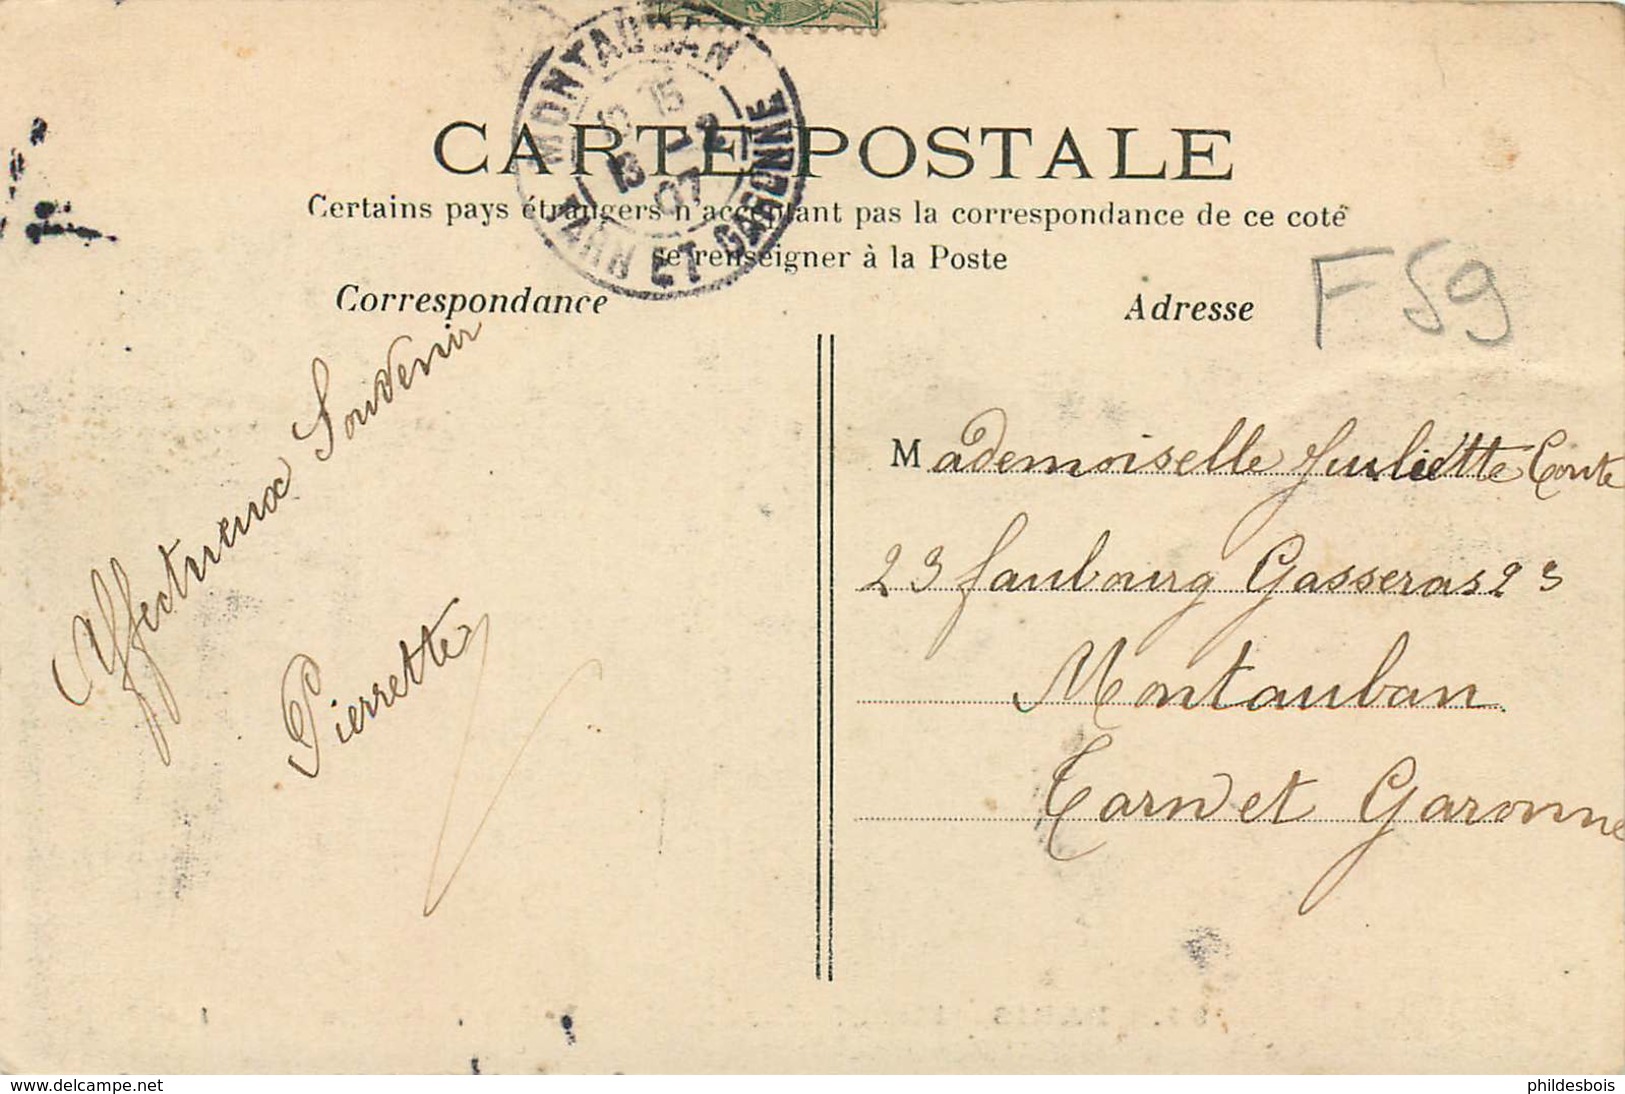 MONTAUBAN
TARN ET GARONNE
15
13 - 12
07
CARTE POSTALE
Certains pays étrangers n'acceptant pas la correspondance de ce coté
se renseigner à la Poste
Correspondance
Adresse
F 59
Affectueux Souvenir
Pierrette
Mademoiselle Juliette Conte
23 faubourg Gasseras 23
Montauban
Tarn et Garonne
www.delcampe.net
phildesbois